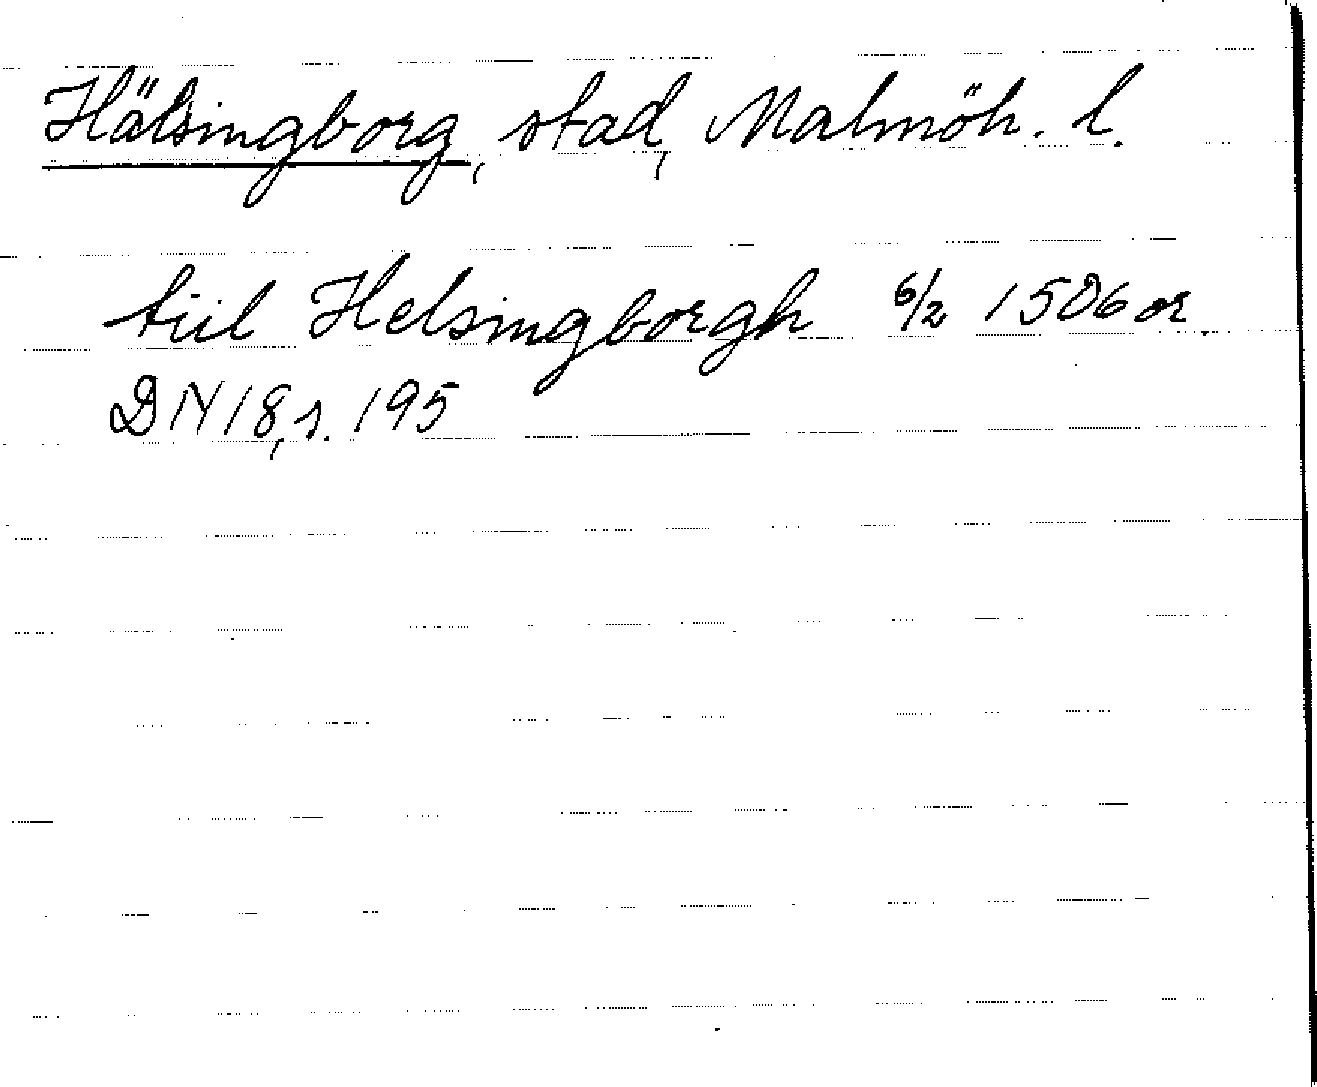 Hälsingborg, stad, Malmöh. l.
tiil Helsingborgh 6/2 1506 or.
DN 18, s. 195